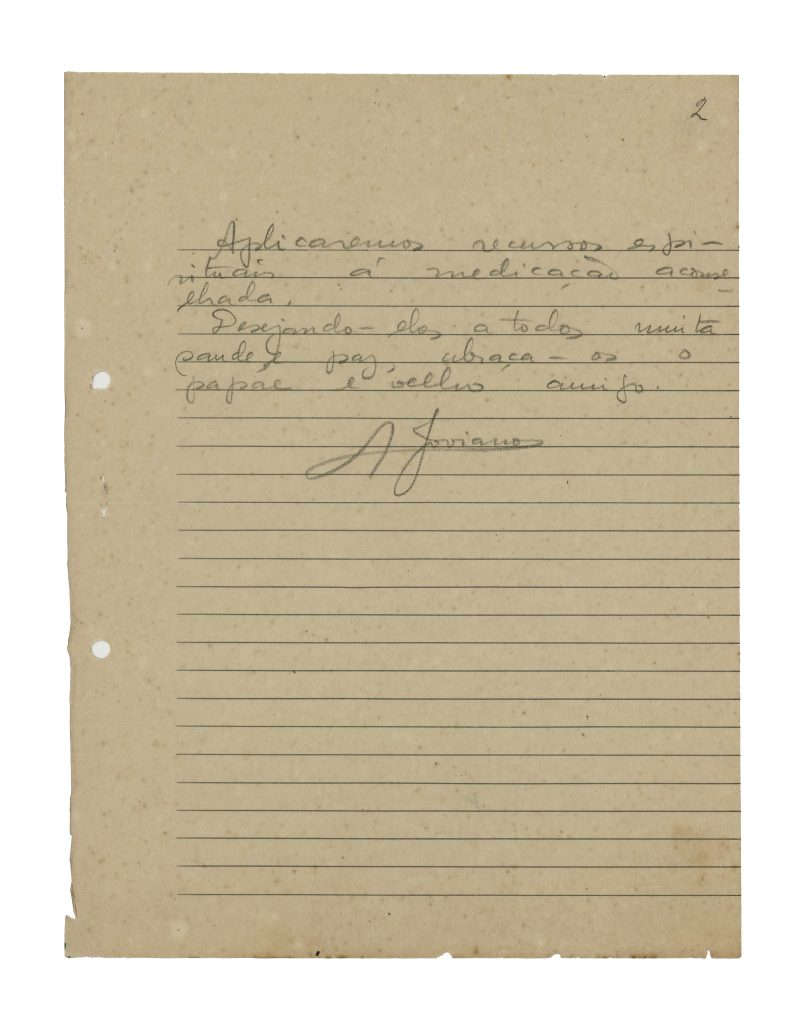 2
Aplicaremos recursos espi-
rituais á medicação aconse
lhada.
Desejando-elos a todos muita
saude e paz, abraça-os o
papáe e velho amigo.
A Jovianos